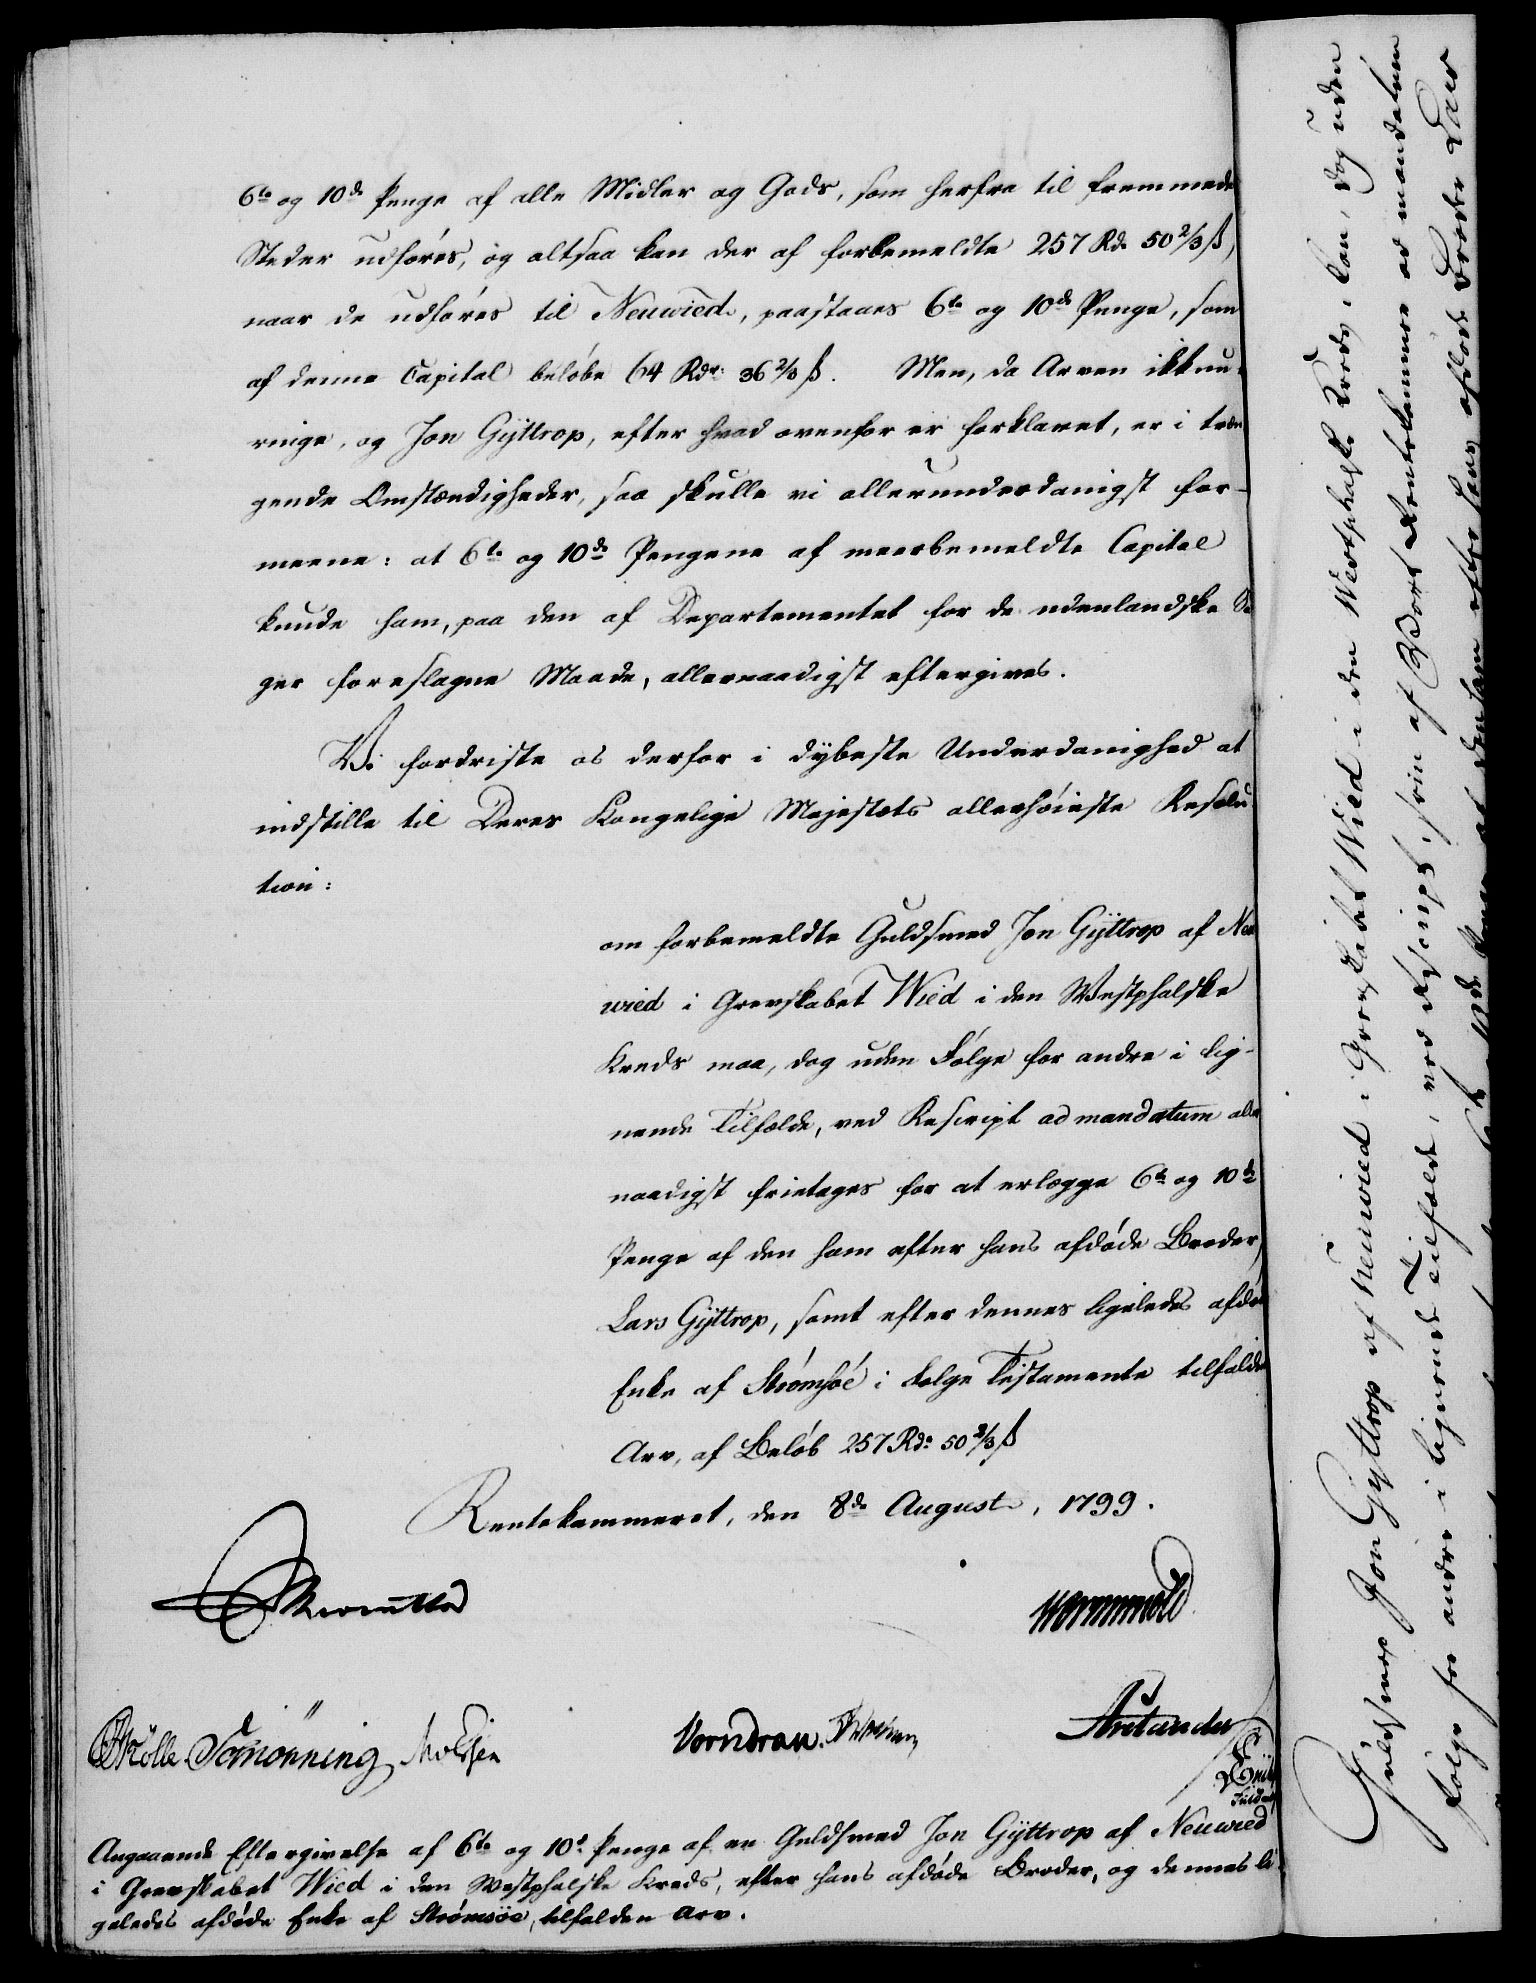 6te og 10de Penge af alle Midler og Gods, som herfra til fremmede
Steder udføres, og altsaa kan der af forbemeldte 257 Rd. 50 2/3 ß,
naar de udføres til Neuwied, paastaaes 6te og 10de Penge, som
af denne Capital beløbe 64 Rdr. 36 2/3 ß. Men, da Arven ikkun er
ringe, og Jon Gÿttrop, efter hvad ovenfor er forklaret, er i træn
gende Omstændigheder, saa skulle vi allerunderdanigst for-
meene: at 6te og 10de Pengene af meerbemeldte Capital
kunde ham, paa den af Departementet for de udenlandske Sa
ger foreslagne Maade, allernaadigst eftergives.
Vi fordriste os derfor i dÿbeste Underdanighed at
indstille til Deres Kongelige Majestæts allerhøieste Resolu
tion:
om forbemeldte Guldsmed Jon Gÿttrop af Neu
wied i Grevskabet Wied i den Westphalske
Kreds maa, dog uden Følge for andre i lig-
nende Tilfælde, ved Rescript ad mandatum aller
naadigst frietages for at erlægge 6te og 10de
Penge af den ham efter hans afdøde Broder,
Lars Gÿttrop, samt efter dennes ligeledes afdøde
Enke af Strømsöe i Følge Testamente tilfaldne
Arv, af Beløb 257 Rd. 50 2/3 ß
Rentekammeret, den 8de August, 1799.
Wormskiold
Skölle Schiönning
Vorndran.
Angaaende Eftergivelse af 6te og 10de Penge af en Guldsmed Jon Gÿttrop af Neuwied
i Grevskabet Wied i den Westphalske Kreds, efter hans afdøde Broder, og dennes li-
geledes afdøde Enke af Strömsöe, tilfalden Arv.
Guldsmed Jon Gÿttrop af Neuwied i Grevskabet Wied i den Westphalske Kreds, kan, dog uden
Følge for andre i lignende Tilfælde, ved Rescript, frit af Vort Rentekammer ad mandatum